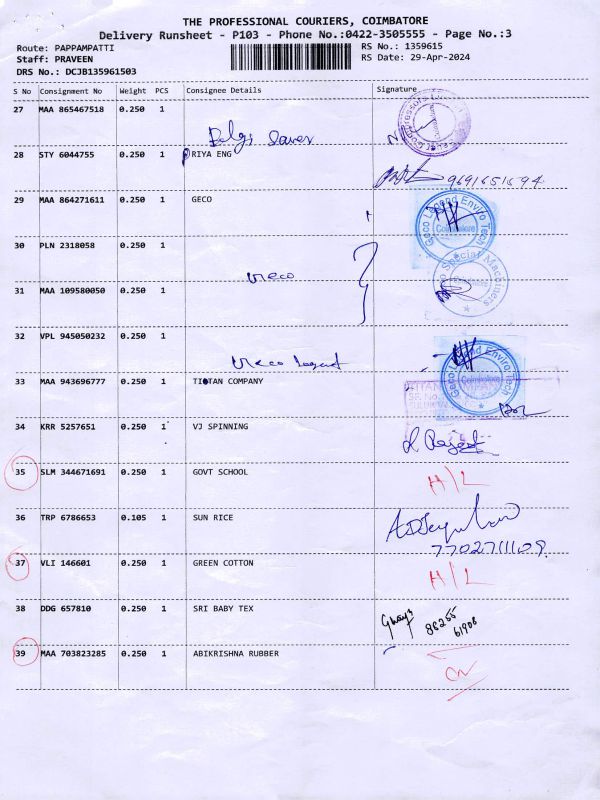 THE PROFESSIONAL COURIERS, COIMBATORE
Delivery Runsheet - P103 - Phone No.:0422-3505555 - Page No.:3
Route: PAPPAMPATTI RS No.: 1359615
Staff: PRAVEEN RS Date: 29-Apr-2024
DRS No.: DCJB135961503
S No Consignment No Weight PCS Consignee Details Signature
27 MAA 865467518 0.250 1
28 STY 6044755 0.250 1 PRIYA ENG
9691651594
29 MAA 864271611 0.250 1 GECO
Geco Legend Enviro Tech
Coimbatore
30 PLN 2318058 0.250 1
Special Machiners
31 MAA 109580050 0.250 1
32 VPL 945050232 0.250 1
Geco Legend Enviro Tech
Coimbatore
33 MAA 943696777 0.250 1 TITAN COMPANY
34 KRR 5257651 0.250 1 VJ SPINNING
35 SLM 344671691 0.250 1 GOVT SCHOOL H/L
36 TRP 6786653 0.105 1 SUN RICE
7702711109
37 VLI 146601 0.250 1 GREEN COTTON H/L
38 DDG 657810 0.250 1 SRI BABY TEX
86255
61906
39 MAA 703823285 0.250 1 ABIKRISHNA RUBBER